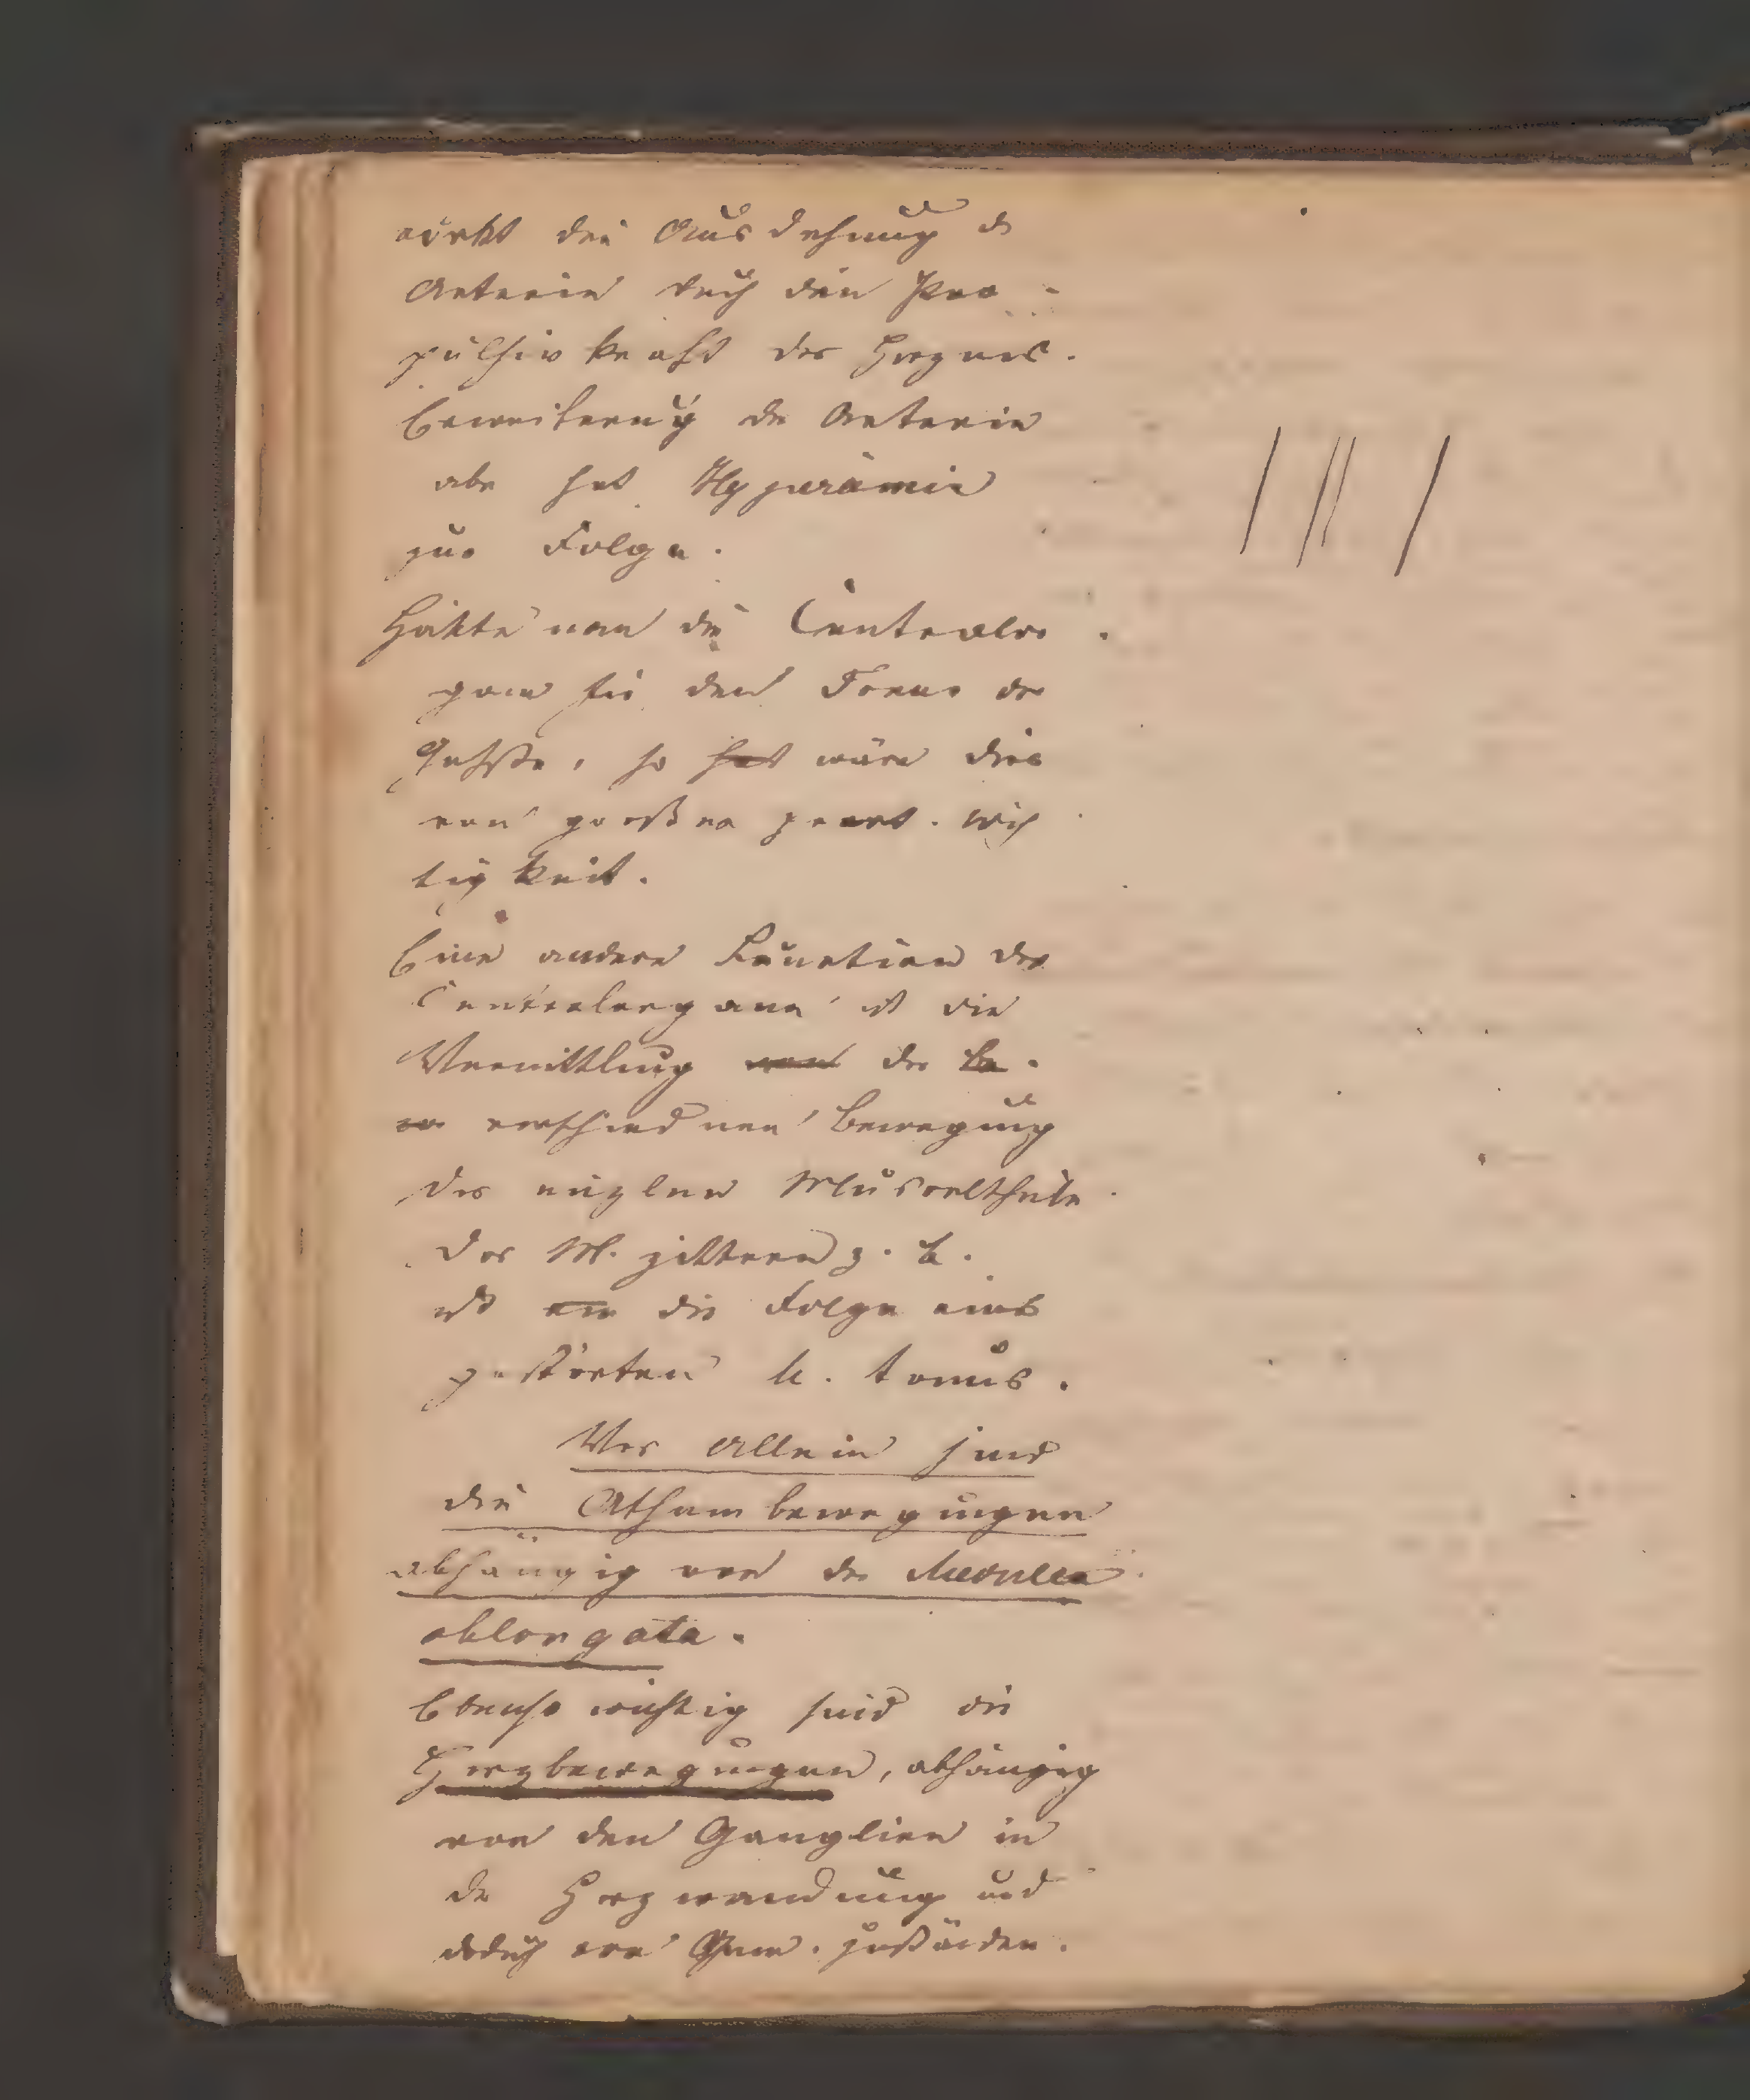 wirkt die Ausdehnung d
Arterien durch den Pro-
pulsivkraft des Herzens.
Erweiterung der Arterien
aber hat Hyperämie
zur Folge.
Hätte man die Centralor
gane für den Tonus der
Gefäße, so hat wäre dies
von großer pract. Wich
tigkeit.
Eine andere Function der
Centralorgane ist die
Vermittlung von der Be-
verschiednen Bewegung
der einzlnen Muskeltheile
Das M. zittern z. B.
ist ein die Folge eines
gestörten M. tonus.
Vor allem sind
die Athembewegungen
abhängig von der Medulla
oblongata.
Ebenso wichtig sind die
Herzbewegungen, abhängig
von den Ganglien in
der Herzwandung und
dadurch von Gem. zuständen.